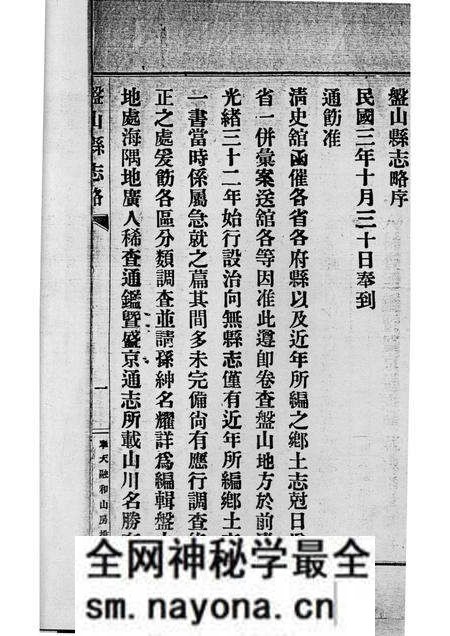 盤山縣志略序
民國三年十月三十日奉到
通飭准
清史舘函催各省各府縣以及近年所編之鄉土志尅日
省一併彙案送舘各等因准此遵卽卷查盤山地方於前
光緒三十二年始行設治向無縣志僅有近年所編鄉土
一書當時係屬急就之篇其間多未完備尙有應行調查
正之處爰飭各區分類調查並請孫紳名耀詳爲編輯盤
地處海隅地廣人稀查通鑑曁盛京通志所載山川名勝
盤山縣志略
一
奉天融和山房
全网神秘学最全
sm.nayona.cn